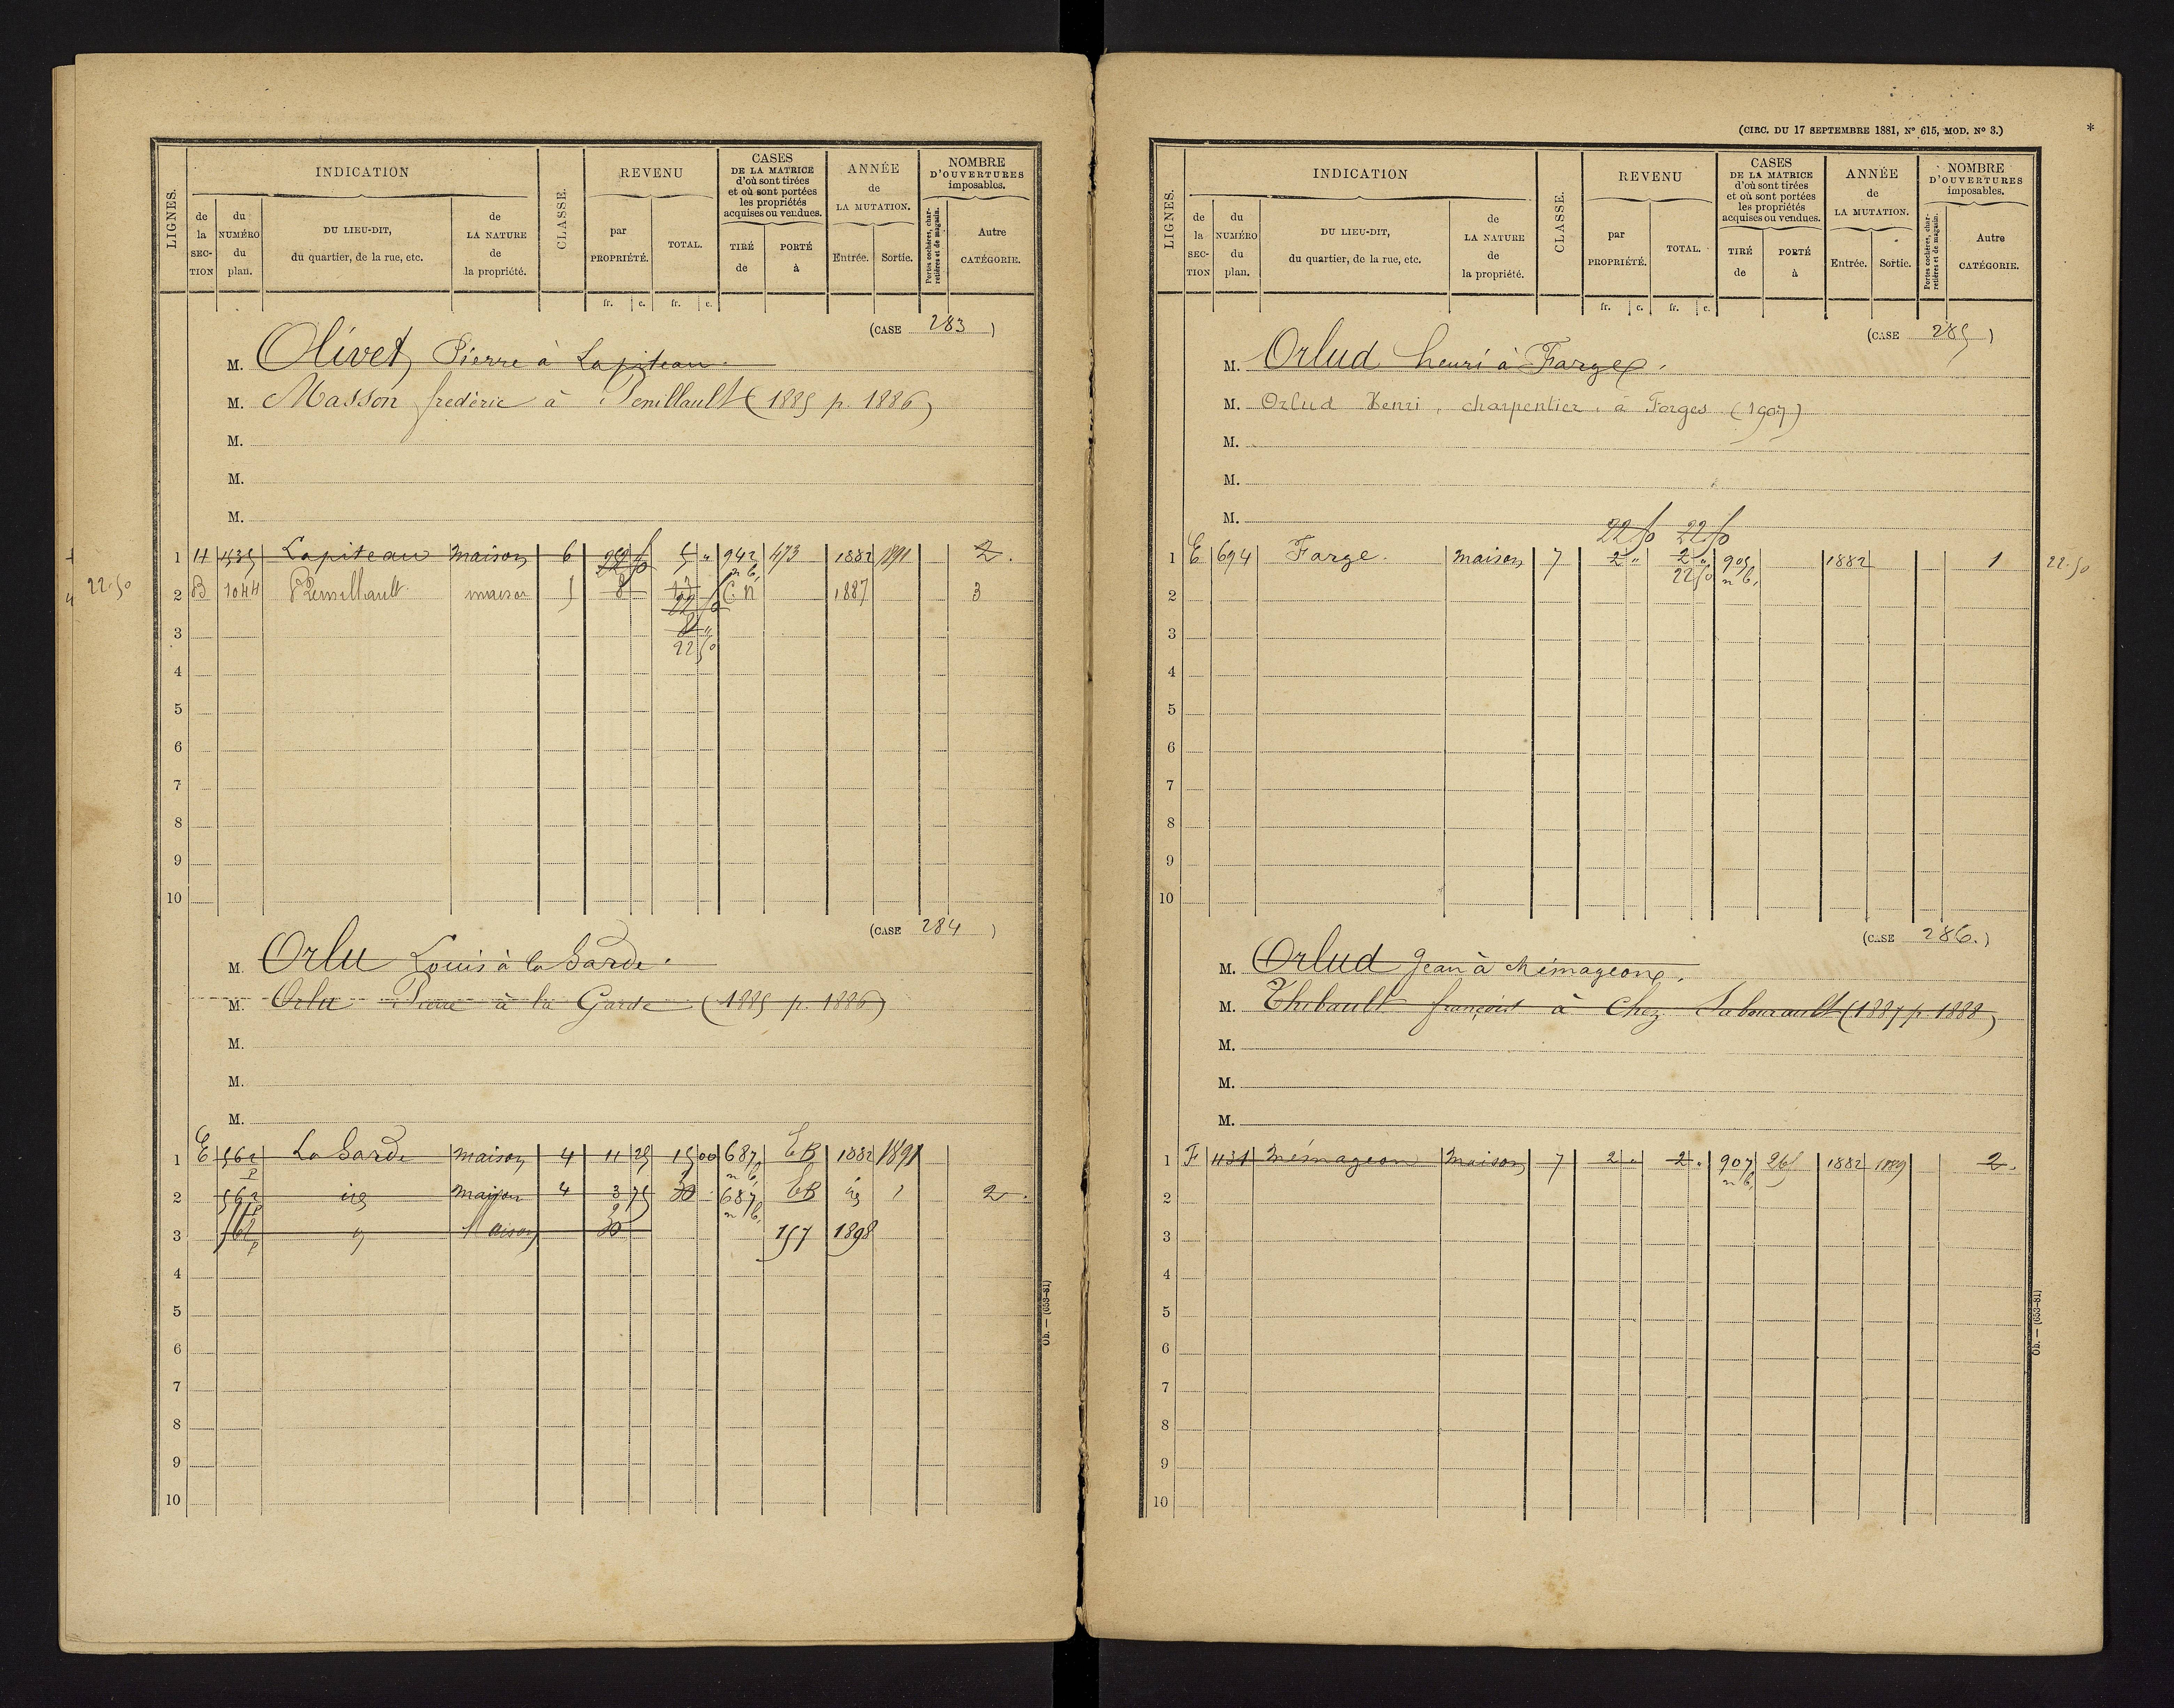 LIGNES.
INDICATION
de la SECTION
du NUMÉRO du plan.
DU LIEU-DIT, du quartier, de la rue, etc.
de LA NATURE de la propriété.
CLASSE.
REVENU
par PROPRIÉTÉ.
TOTAL.
fr. c. fr. c.
CASES DE LA MATRICE d'où sont tirées et où sont portées les propriétés acquises ou vendues.
TIRÉ de
PORTÉ à
ANNÉE de LA MUTATION.
Entrée. Sortie.
NOMBRE D'OUVERTURES imposables.
Portes cochères, charretières et de magasin.
Autre CATÉGORIE.
(CASE 283)
M. Olivet, Pierre à Lapiteau.
M. Masson frédéric à Penillault (1885 p. 1886)
M.
M.
M.
1 H 1535 Lapiteau maison 6 22 50 5 " 942 n b. 473 1882 1891 2.
22.50 2 B 1044 maison 5 8 C.N 1887 3
22 50
8 "
22 50
3
4
5
6
7
8
9
10
(CASE 284)
M. Orlu Louis à la Garde.
M. Orlu Pierre à la Garde (1885 p. 1886)
M.
M.
M.
1 E 562 p La Garde maison 4 11 25 15 00 687 n b. 1882 1891
2 562 p maison 4 3 75 30 687 n b. 2.
3 562 p " Maison 30 157 1898
4
5
6
7
8
9
10
Ob. — (653-81)
(CIRC. DU 17 SEPTEMBRE 1881, Nº 615, MOD. Nº 3.)
*
LIGNES.
INDICATION
de la SECTION
du NUMÉRO du plan.
DU LIEU-DIT, du quartier, de la rue, etc.
de LA NATURE de la propriété.
CLASSE.
REVENU
par PROPRIÉTÉ.
TOTAL.
fr. c. fr. c.
CASES DE LA MATRICE d'où sont tirées et où sont portées les propriétés acquises ou vendues.
TIRÉ de
PORTÉ à
ANNÉE de LA MUTATION.
Entrée. Sortie.
NOMBRE D'OUVERTURES imposables.
Portes cochères, charretières et de magasin.
Autre CATÉGORIE.
(CASE 285)
M. Orlud henri à Farges.
M. Orlud Henri, charpentier, à Forges (1907)
M.
M.
M.
22 50 22 50
1 E 694 Farge. maison 7 2 " 2 " 905 n b. 1882 1 22.50
22 50
2
3
4
5
6
7
8
9
10
(CASE 286.)
M. Orlud Jean à Mémageong.
M. Thibault françois à Chez Labourault (1887 p. 1888)
M.
M.
M.
1 F 431 Mémageon Maison 7 2 " 2 " 907 n b. 265 1882 1889 2.
2
3
4
5
6
7
8
9
10
Ob. — (653-81)